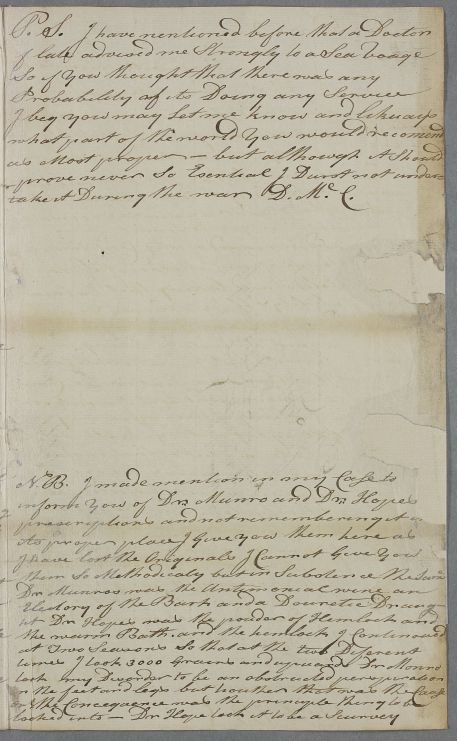 P. S. I have mentioned before that a Doctor
of late advised me Strongly to a Sea Voage
So if you thought that there was any
Probability of its Doing any Service
I beg you may Let me know and likways
what part of the world you would recomend
as Most proper — but although it Should
prove never So Esential I Durst not under=
take it During the war D. Mc. C.
N. B. I made mention in my Case to
inform you of Drs Munro and Dr. Hopes
prescriptions and not remembering it in
its proper place I Give you them here as
I have lost the Originals I Cannot Give you
them So Methodicaly but in Substence the Same
Dr Munros was the Antimonial wine an
Electory of the Bark and a Douretic Draug
ht Dr Hopes was the pouder of Hemlock and
the warm Bath. and the hemlock I Continoued
at Two Seasons So that at the two Different
times I took 3000 Greens and upwards Dr Monro
took my Disorder to be an obstructed perspiration
in the feet and legs but whether that was the Cause
or the Concequence was the principle thing to be
looked into — Dr Hope took it to be a Scurvey